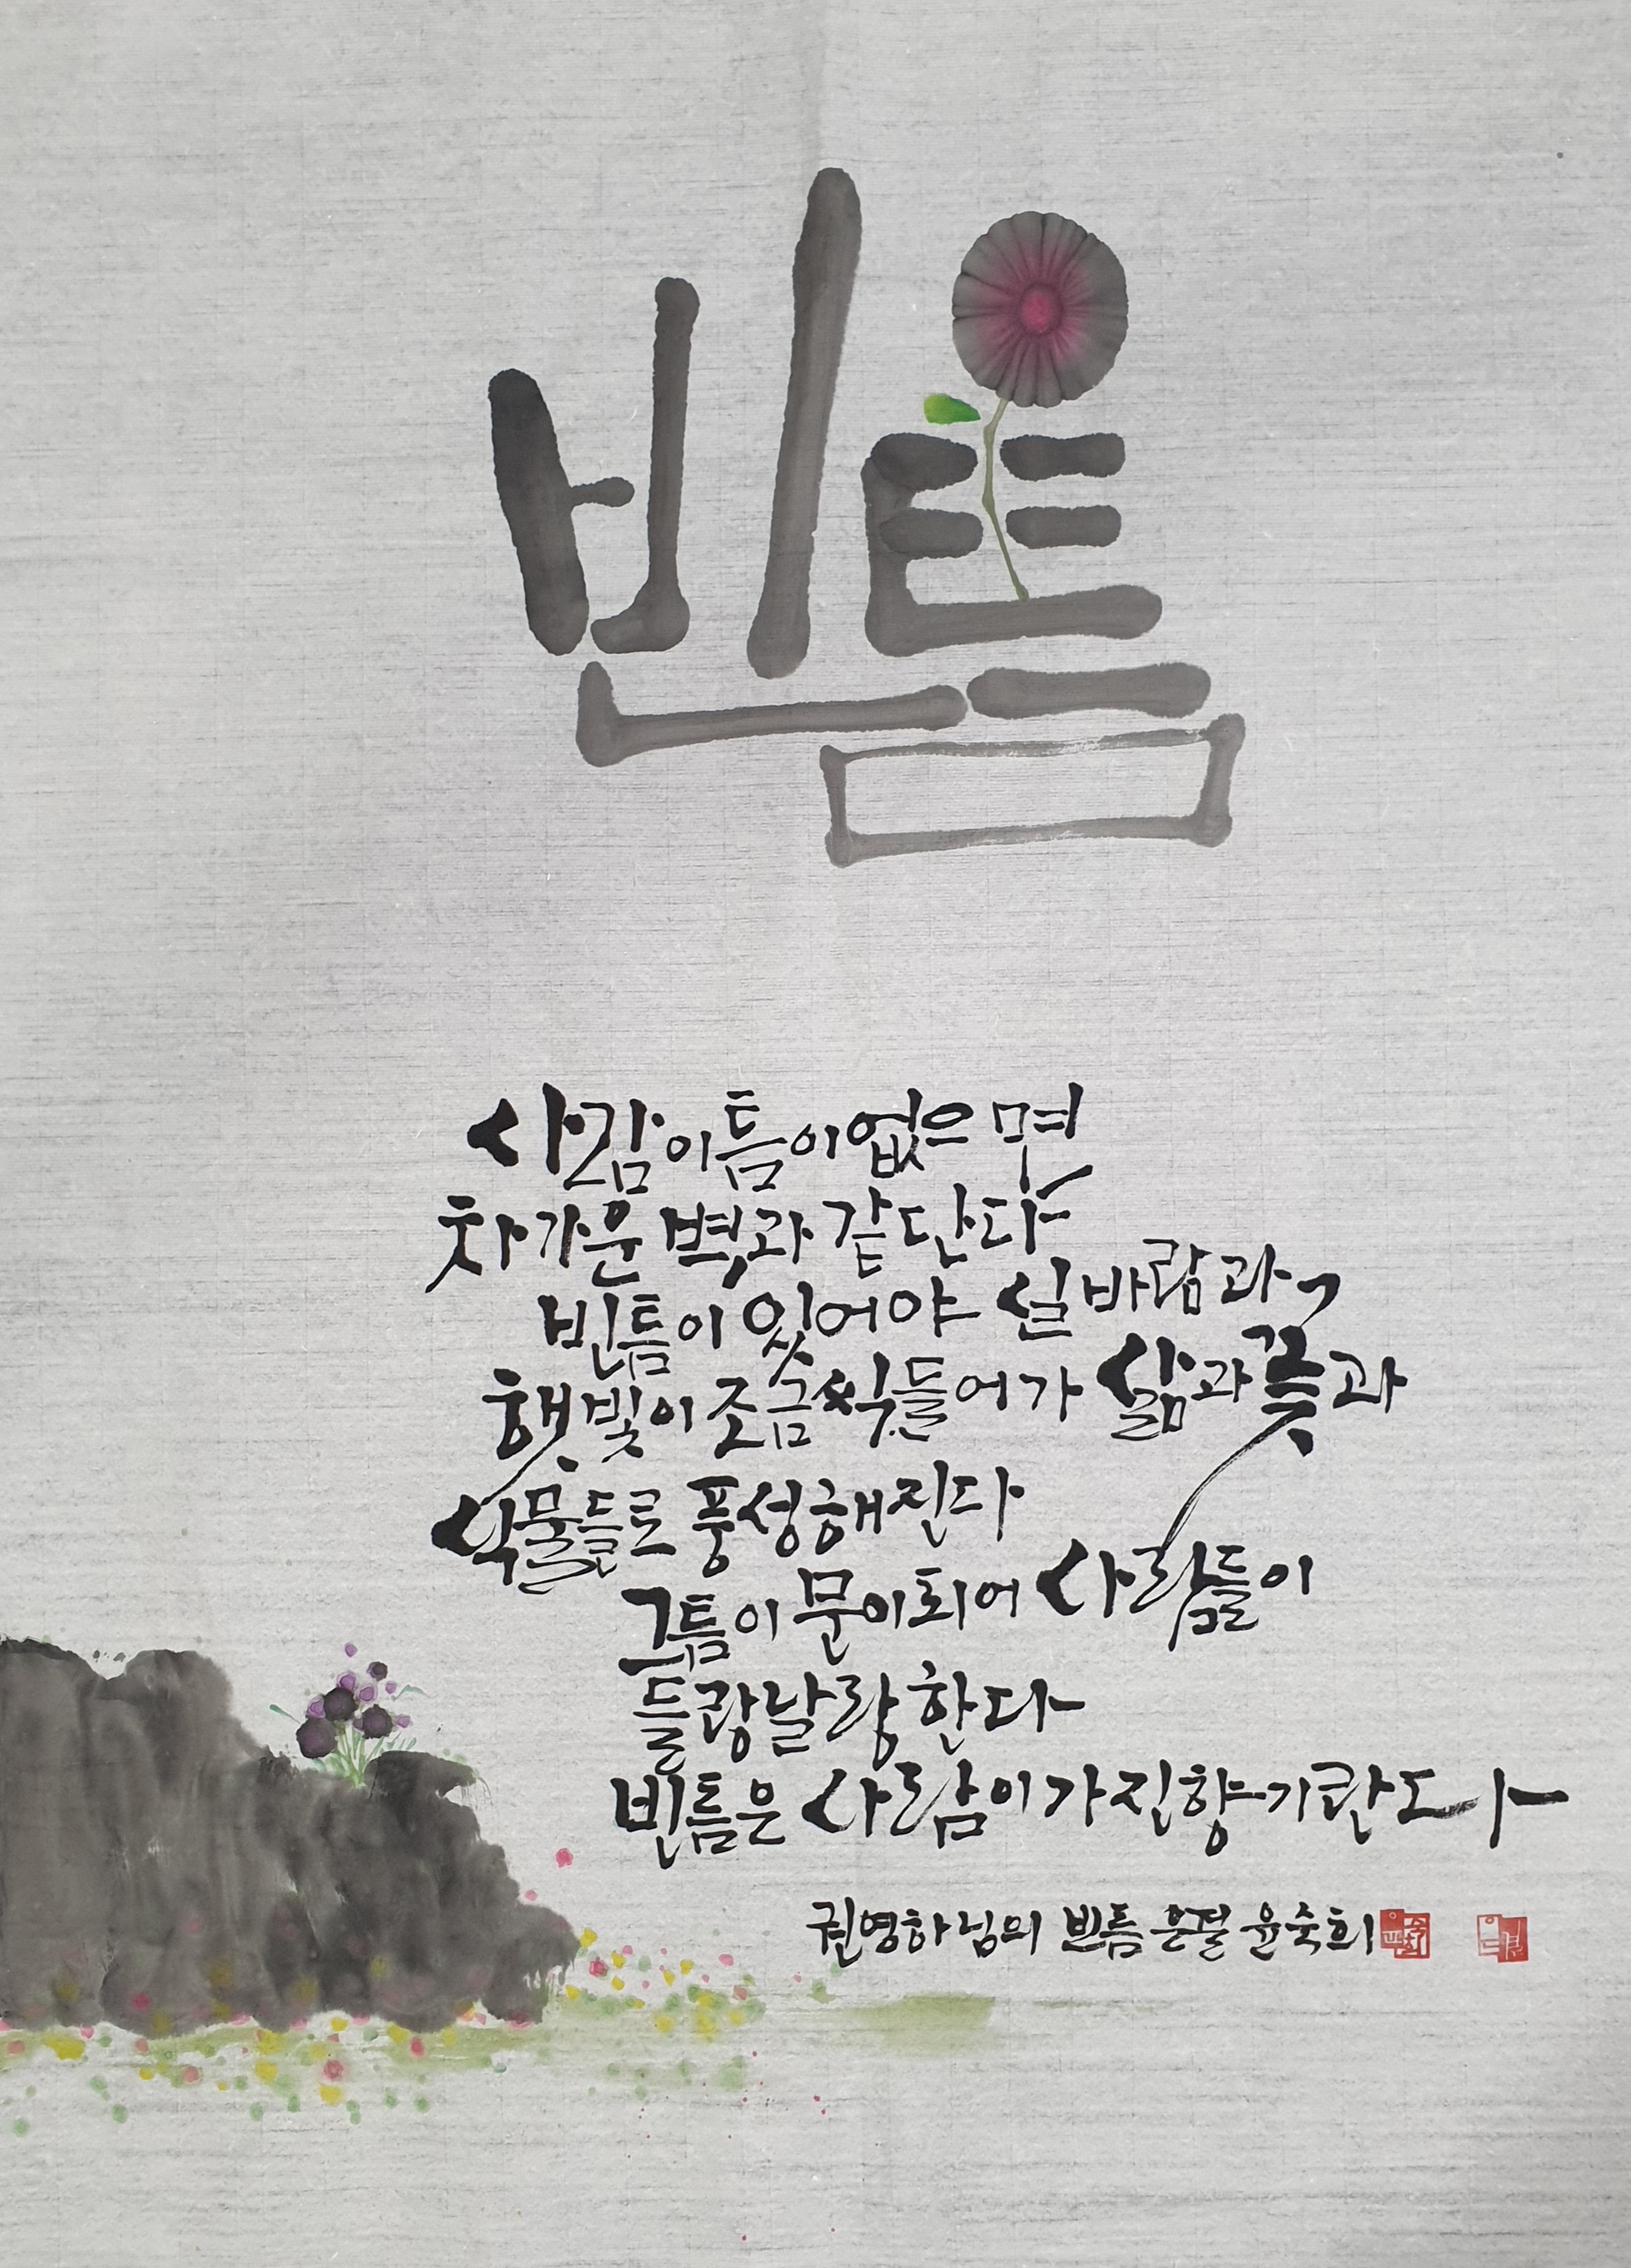 빈틈
사람이 틈이 없으면
차가운 벽과 같단다
빈틈이 있어야 실바람과
햇빛이 조금씩 들어가 삶과 꽃과
식물들로 풍성해진다
그 틈이 문이 되어 사람들이
들랑날랑 한다
빈틈은 사람이 가진 향기란다
권영하님의 빈틈 은결 윤숙희